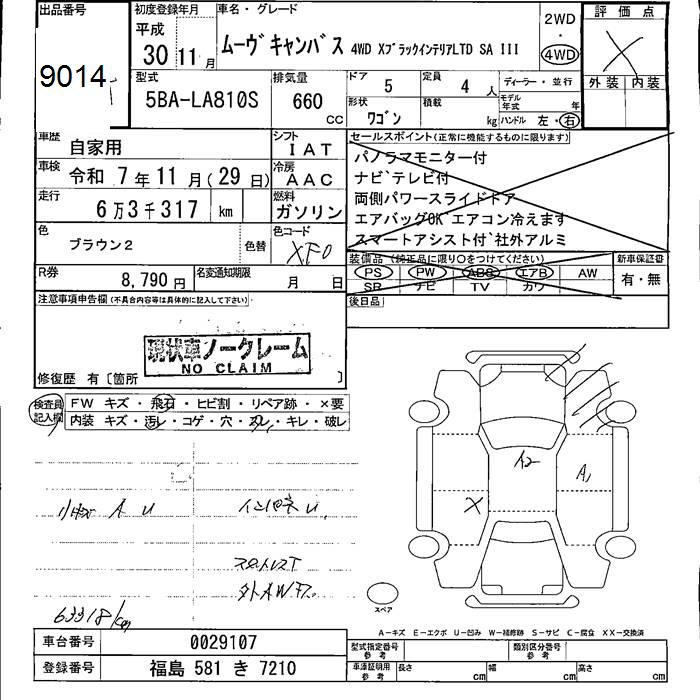 出品番号
9014
初度登録年月
平成
30 11 月
車名・グレード
ムーヴキャンバス 4WD XブラックインテリアLTD SA III
2WD
・
4WD
評価点
外装 内装
型式
5BA-LA810S
排気量
660
CC
ドア
5
定員
4 人
ディーラー・並行
形状
ワゴン
積載
kg
モデル年式 年
ハンドル 左・右
車歴
自家用
シフト
IAT
車検
令和 7年11月(29日)
冷房
AAC
走行
6万3千317 km
燃料
ガソリン
色
ブラウン2
色替
色コード
XF0
セールスポイント(正常に機能するものに限ります)
パノラマモニター付
ナビテレビ付
両側パワースライドドア
エアバッグOK エアコン冷えます
スマートアシスト付 社外アルミ
装備品(純正品に限り○をつけてください)
PS PW ABS エアB AW
SR ナビ TV カワ
新車保証書
有・無
後日品
R券
8,790円
名変通知期限
月 日
注意事項申告欄(不具合内容等は具体的に記入して下さい)
現状車ノークレーム
NO CLAIM
修復歴 有〔箇所 〕
検査員記入欄
FW キズ・飛石・ヒビ割・リペア跡・×要
内装 キズ・汚レ・コゲ・穴・スレ・キレ・破レ
小キズ A U
インパネ U
スタットレスT
外AW
63318/km
A1
X
スペア
A－キズ E－エクボ U－凹み W－補修跡 S－サビ C－腐食 XX－交換済
車台番号
0029107
登録番号
福島 581 き 7210
型式指定番号
参考
類別区分番号
参考
車庫証明用
参考
長さ cm
幅 cm
高さ cm